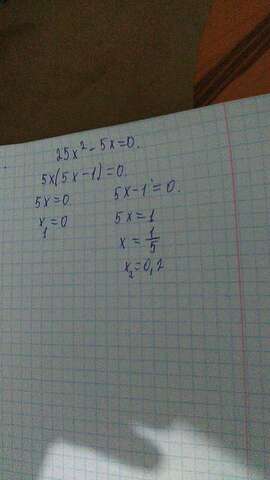 25x² - 5x = 0.
5x(5x - 1) = 0.
5x = 0 5x - 1 = 0.
x₁ = 0 5x = 1
x = 1/5
x₂ = 0,2